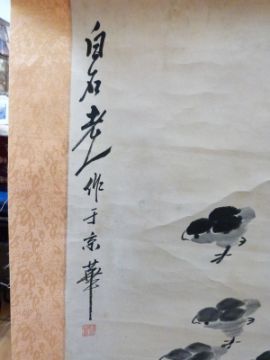 白石老人作于京華